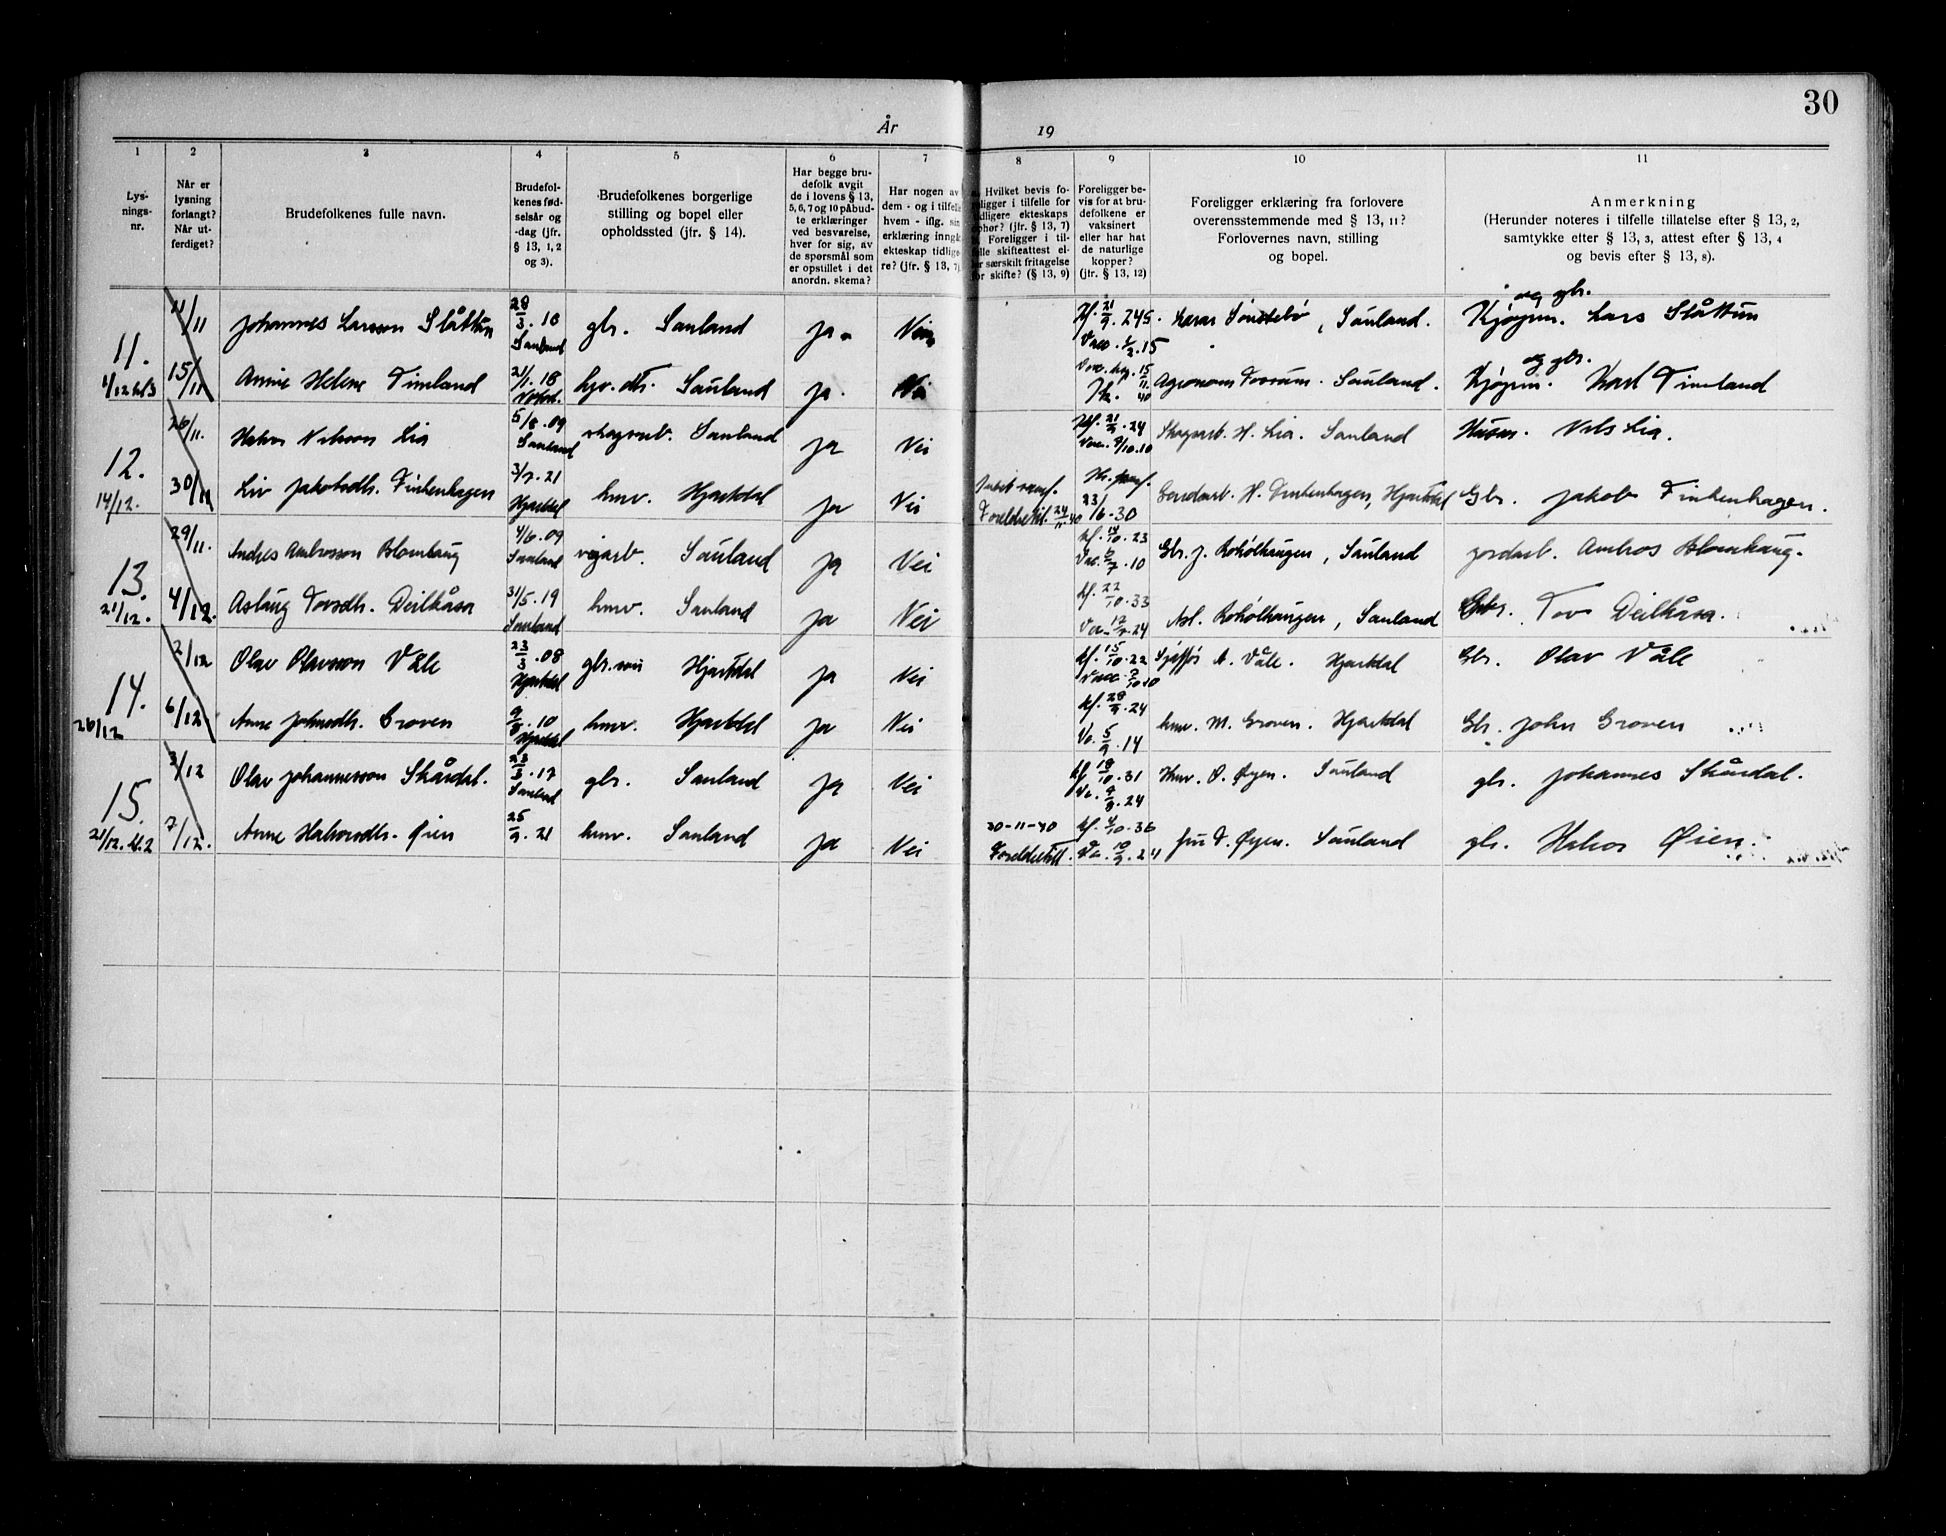 30
År 19
1 2 3 4 5 6 7 8 9 10 11
Lys-
nings-
nr.
Når er
lysning
forlangt?
Når ut-
ferdiget?
Brudefolkenes fulle navn.
Brudefol-
kenes fød-
selsår og
-dag (jfr.
§ 13, 1, 2
og 3).
Brudefolkenes borgerlige
stilling og bopel eller
opholdssted (jfr. § 14).
Har begge bru-
defolk avgit
de i lovens § 13,
5, 6, 7 og 10 påbud-
te erklæringer
ved besvarelse,
hver for sig, av
de spørsmål som
er opstillet i det
anordn. skema?
Har nogen av
dem - og i tilfelle
hvem - iflg. sin
erklæring inngåt
ekteskap tidlige-
re? (jfr. § 13, 7)
Hvilket bevis fo-
religger i tilfelle for
tidligere ekteskaps
ophør? (jfr. § 13, 7)
Foreligger i til-
felle skifteattest el-
ler særskilt fritagelse
for skifte? (§ 13, 9)
Foreligger be-
vis for at bru-
defolkene er
vaksinert
eller har hat
de naturlige
kopper?
(jfr. § 13, 12)
Foreligger erklæring fra forlovere
overensstemmende med § 13, 11?
Forlovernes navn, stilling
og bopel.
Anmerkning
(Herunder noteres i tilfelle tillatelse efter § 13, 2,
samtykke efter § 13, 3, attest efter § 13, 4
og bevis efter § 13, 8).
11. 11/11 Johannes Larsson Slåttun 28/3.10 Sauland gbr. Sauland Ja. Nei Kf. 21/9.245. Vacc. 1/2.15 Sønstebø, Sauland. Kjøpm. og gbr. Lars Slåttun
1/12 15/11 Anne Helene Timland 21/1.18 Sauland Ja. Nei 15/11 40 Agronom Sauland. Kjøpm. og gbr. Timland
12. 26/11. Halvor Nilsson Lia 5/8.09 Sauland skogsarb. Sauland Ja Nei Kf. 21/9.24 Vac. 9/10.10 Skogsarb. H. Lia. Sauland Husm. Nils Lia.
14/12. 30/11 Liv Jakobsdtr. Finkenhagen 3/7.21 Hjartdal hmv. Hjartdal Ja Nei Foreldretil. 24/11.40 23/6.30 H. Finkenhagen, Hjartdal Gbr. Jakob Finkenhagen.
13. 29/11. Andres Ambrosson Blomhaug 4/6.09 Sauland vegarb. Sauland Ja Nei Kf. 14/10.23 Vac. 6/7.10 Gbr. J. Roholthaugen, Sauland jordarb. Ambros Blomhaug.
21/12. 4/12. Aslaug Tovsdtr. Deilkåsa 31/5.19 Sauland hmv. Sauland Ja Nei Kf. 22/10.33 Vac. 12/7.24 Asl. Roholthaugen, Sauland Gbr. Tov Deilkåsa.
14. 2/12 Olav Olavsson Våle 23/3.08 Hjartdal gbr.søn Hjartdal Ja Nei Kf. 15/10.22 Vacc. 9/10.10 Sjåffør A. Våle. Hjartdal Gbr. Olav Våle
26/12 6/12. Anne Johnsdtr. Groven 9/8.10 Hjartdal hmv. Hjartdal Ja Nei Kf. 28/9.24 Va. 5/9.14 hmv. M. Groven. Hjartdal Gbr. John Groven
15. 3/12 Olav Johannesson Skårdal. 23/3.17 Sauland gbr. Sauland Ja Nei Kf. 18/10.31 Va. 9/9.24 Hmv. O. Øyen. Sauland gbr. Johannes Skårdal.
21/12. kl. 2 7/12. Anne Halvorsdtr. Øien 25/9.21 hmv. Sauland Ja Nei 30-11-40 Foreldretill. Kf. 4/10.36 Va. 10/9.24 fru T. Øyen. Sauland gbr. Halvor Øien.